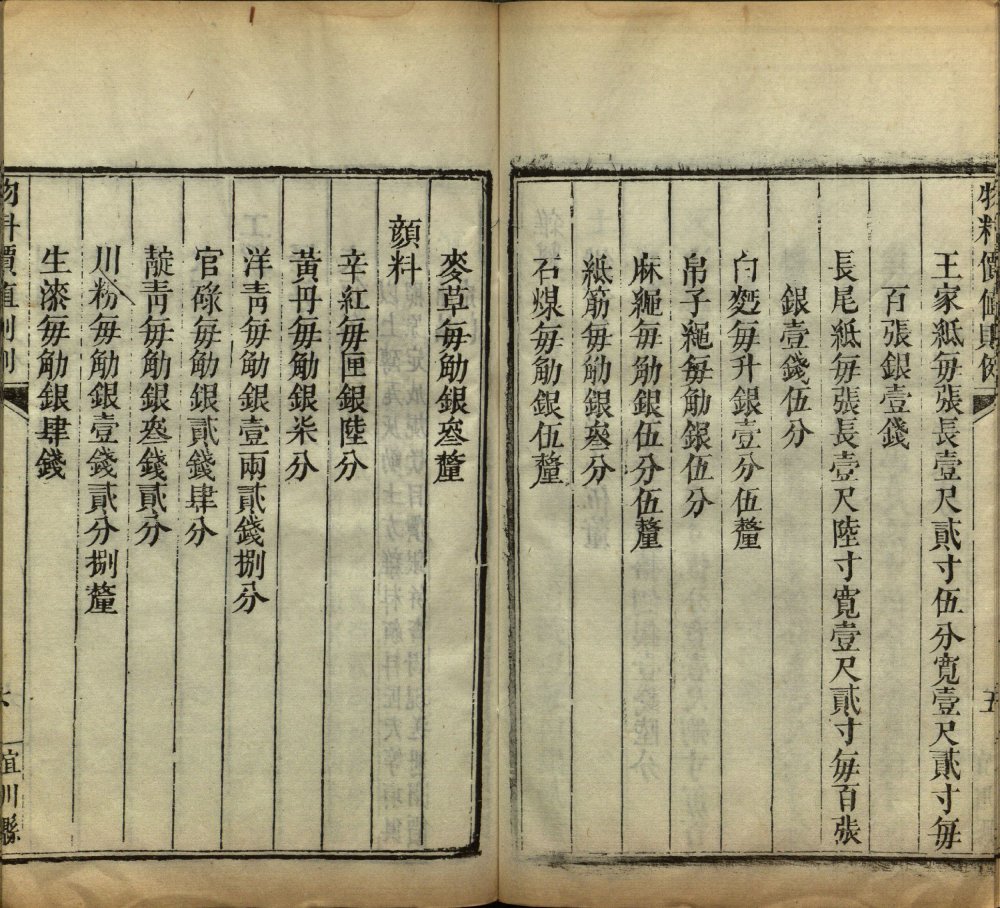 物料價值則例
五
王家紙每張長壹尺貳寸伍分寬壹尺貳寸每
百張銀壹錢
長尾紙每張長壹尺陸寸寬壹尺貳寸每百張
銀壹錢伍分
白麪每升銀壹分伍釐
帛子繩每觔銀伍分
麻繩每觔銀伍分伍釐
紙筋每觔銀叄分
石煤每觔銀伍釐
麥草每觔銀叄釐
顔料
辛紅每匣銀陸分
黃丹每觔銀柒分
洋青每觔銀壹兩貳錢捌分
官碌每觔銀貳錢肆分
靛青每觔銀叄錢貳分
川粉每觔銀壹錢貳分捌釐
生漆每觔銀肆錢
物料價值則例
六
宜川縣